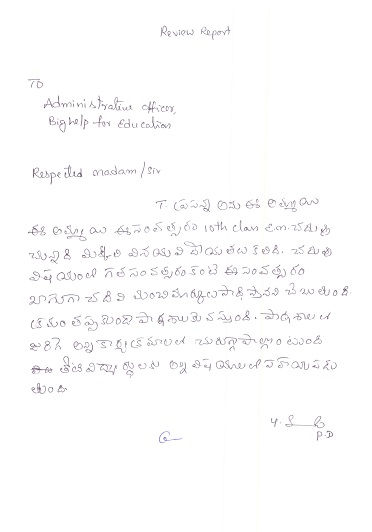 Review Report
TO
Administrative officer,
Bighelp for Education
Respected madam/sir
T. ప్రసన్న అను ఈ అమ్మాయి
ఈ అమ్మాయి ఈ సంవత్సరం 10th class E.M. చదువు
చున్నది మిక్కిలి వినయ విధేయతలు కలిగి. చదువు
విషయంలో గత సంవత్సరం కంటే ఈ సంవత్సరం
బాగుగా చదివి మంచి మార్కులు సాధిస్తానని చెబుతుంది
క్రమం తప్పకుండా పాఠశాలకు వస్తుంది. పాఠశాలలో
జరిగే అన్ని కార్యక్రమాలలో చురుగ్గా పాల్గొంటుంది
తోటి విద్యార్థులకు అన్ని విషయాలలో సహాయపడు
తుంది
P.D